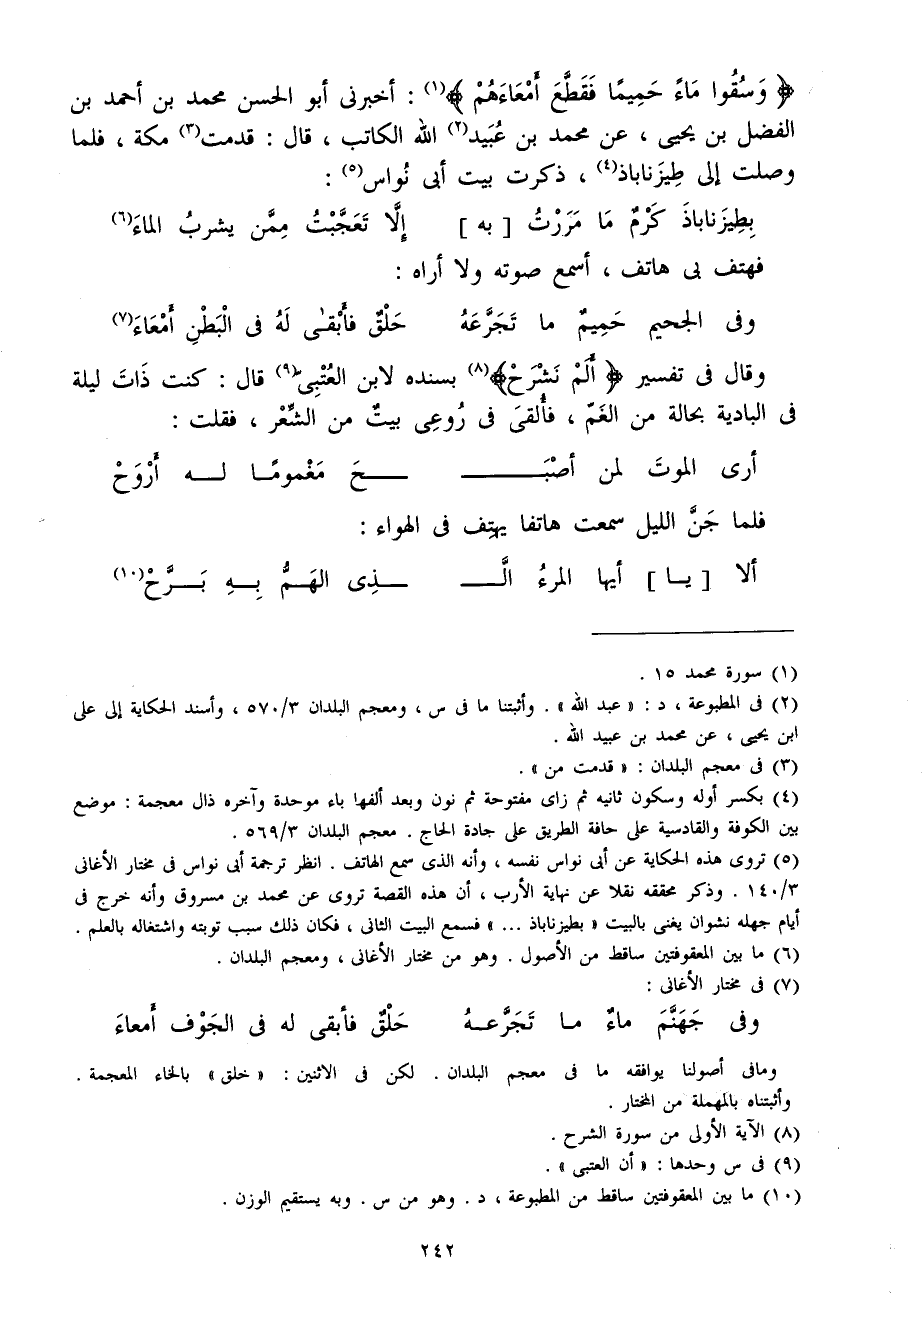 ﴿ وَسُقُوا مَاءً حَمِيمًا فَقَطَّعَ أَمْعَاءَهُمْ ﴾(١) : أخبرنى أبو الحسن محمد بن أحمد بن
الفضل بن يحيى ، عن محمد بن عُبَيد(٢) الله الكاتب ، قال : قدمت(٣) مكة ، فلما
وصلت إلى طِيزَناباذ(٤) ، ذكرت بيت أبى نُواس(٥) :
بِطِيزَناباذَ كَرْمٌ مَا مَرَرْتُ [ به ] إِلَّا تَعَجَّبْتُ مِمَّن يشربُ الماءَ(٦)
فهتف بى هاتف ، أسمع صوته ولا أراه :
وفى الجحيم حَمِيمٌ ما تَجَرَّعَهُ حَلْقٌ فأَبْقىٰ لَهُ فى الْبَطْنِ أَمْعَاءَ(٧)
وقال فى تفسير ﴿ أَلَمْ نَشْرَحْ﴾(٨) بسنده لابن العُتْبِى(٩) قال : كنت ذَاتَ ليلة
فى البادية بحالة من الغَمّ ، فأُلقىَ فى رُوعِى بيتٌ من الشِّعْر ، فقلت :
أرى الموتَ لمن أصْبَــــــــ ـــــحَ مَغْمومًـا لــــه أَرْوَحْ
فلما جَنَّ الليل سمعت هاتفا يهتف فى الهواء :
ألا [ يـا ] أيها المرءُ الَّــــــ ـــــذِى الهَـمُّ بِـهِ بَـرَّحْ(١٠)
(١) سورة محمد ١٥ .
(٢) فى المطبوعة ، د : « عبد الله » . وأثبتنا ما فى س ، ومعجم البلدان ٥٧٠/٣ ، وأسند الحكاية إلى على
ابن يحيى ، عن محمد بن عبيد الله .
(٣) فى معجم البلدان : « قدمت من » .
(٤) بكسر أوله وسكون ثانيه ثم زاى مفتوحة ثم نون وبعد ألفها باء موحدة وآخره ذال معجمة : موضع
بين الكوفة والقادسية على حافة الطريق على جادة الحاج . معجم البلدان ٥٦٩/٣ .
(٥) تروى هذه الحكاية عن أبى نواس نفسه ، وأنه الذى سمع الهاتف . انظر ترجمة أبى نواس فى مختار الأغانى
١٤٠/٣ . وذكر محققه نقلا عن نهاية الأرب ، أن هذه القصة تروى عن محمد بن مسروق وأنه خرج فى
أيام جهله نشوان يغنى بالبيت « بطيزناباذ ... » فسمع البيت الثانى ، فكان ذلك سبب توبته واشتغاله بالعلم .
(٦) ما بين المعقوفتين ساقط من الأصول . وهو من مختار الأغانى ، ومعجم البلدان .
(٧) فى مختار الأغانى :
وفى جَهَنَّمَ ماءٌ مـا تَجَرَّعـهُ حَلْقٌ فأبقى له فى الجَوْف أمعاءَ
ومافى أصولنا يوافقه ما فى معجم البلدان . لكن فى الاثنين : « خلق » بالخاء المعجمة .
وأثبتناه بالمهملة من المختار .
(٨) الآية الأولى من سورة الشرح .
(٩) فى س وحدها : « أن العتبى » .
(١٠) ما بين المعقوفتين ساقط من المطبوعة ، د . وهو من س . وبه يستقيم الوزن .
٢٤٢